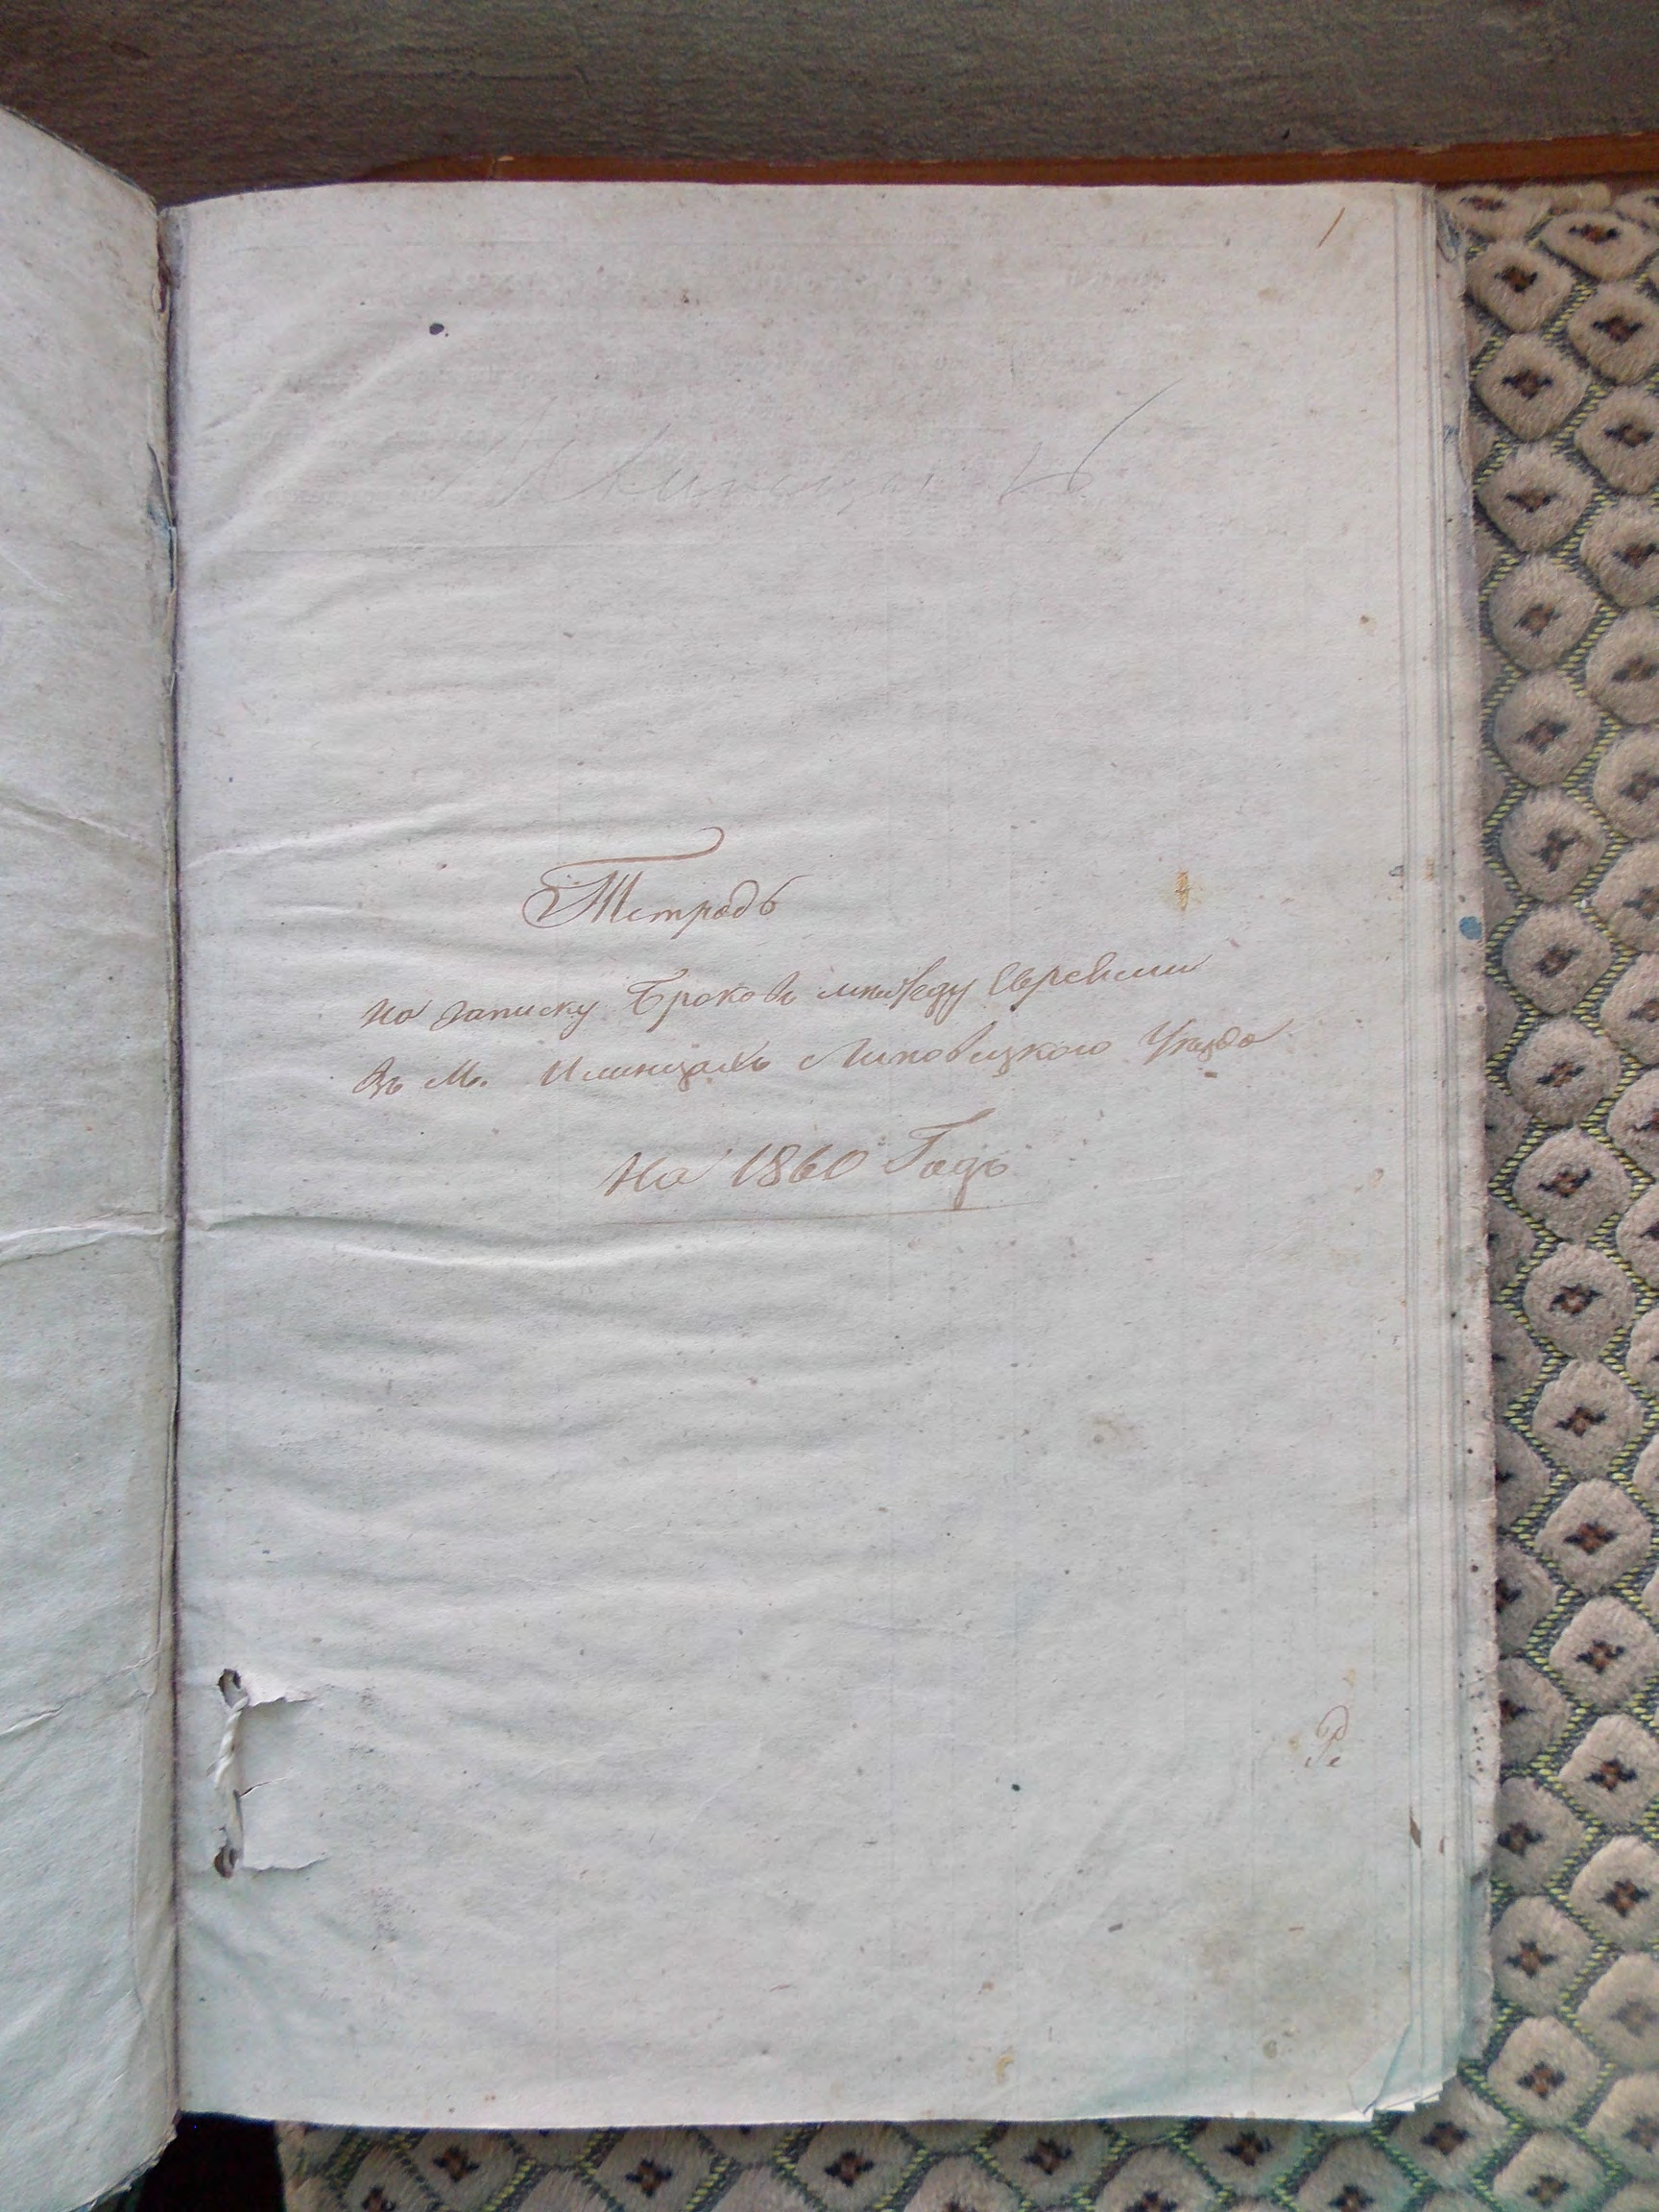 1
Тетрадь
на записку Браковъ между Евреями
въ М. Илинцахъ Липовецкого Уезда
На 1860 Годъ